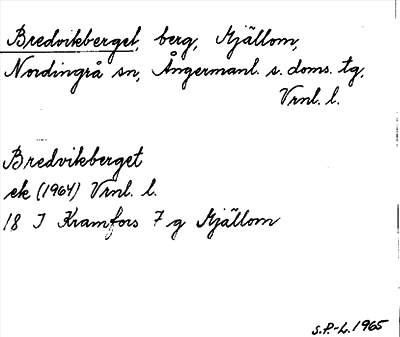 Bredvikberget, berg, Mjällom,
Nordingrå sn, Ångermanl. s. doms. tg,
Vrnl. l.
Bredvikberget
ek (1964) Vrnl. l.
18 I Kramfors 7 g Mjällom
S.P.-L. 1965